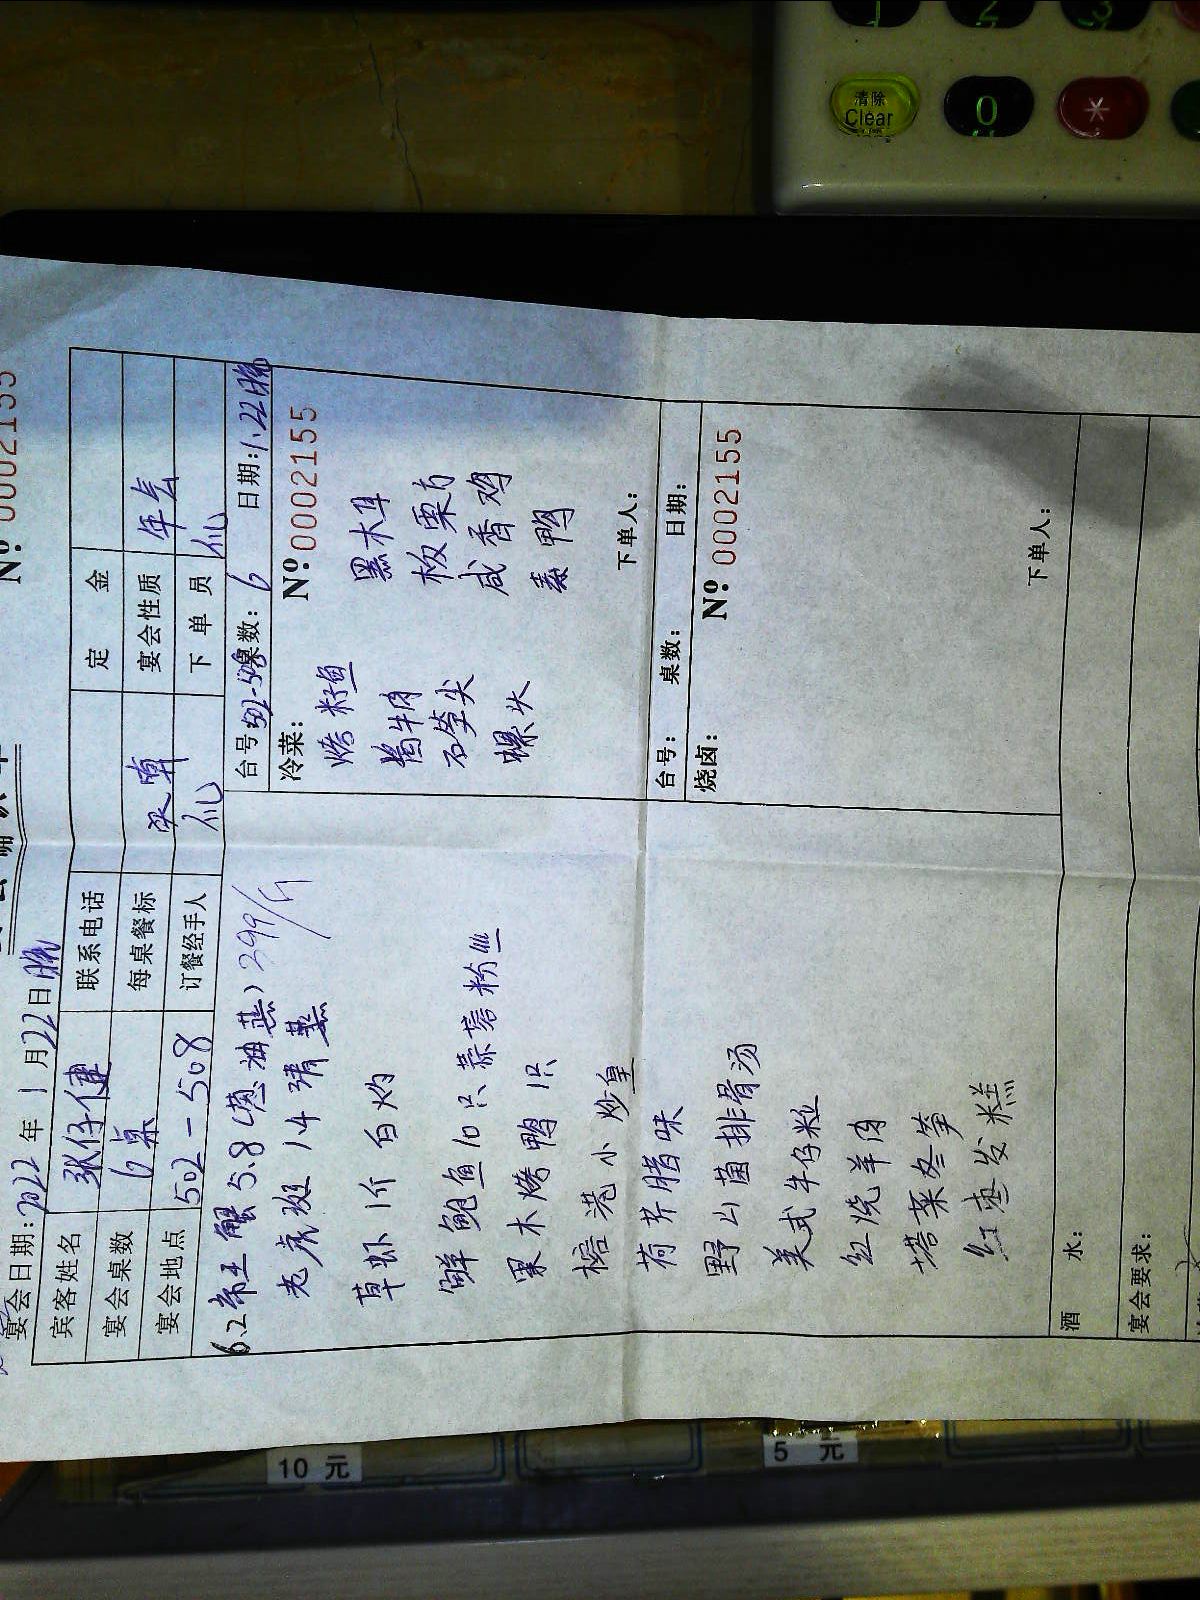 No 0002155
宴会日期：2022 年 1 月 22 日 晚
宾客姓名 张仔健 联系电话 定 金
宴会桌数 6桌 每桌餐标 宴会性质 年会
宴会地点 502-508 订餐经手人 下 单 员
6.2帝王蟹 5.8（葱油蒸）299/斤
老虎斑 1.4 清蒸
草虾 1斤 白灼
鲜鲍鱼 10只 蒜蓉粉丝
果木烤鸭 1只
榕港小炒皇
荷芹腊味
野山菌排骨汤
美式牛仔粒
红烧羊肉
塔菜冬笋
红枣发糕
台号：502-508 桌数：6 日期：1.22晚
冷菜： No 0002155
烤籽鱼 黑木耳
酱牛肉 板栗方
石笋尖 咸香鸡
螺头 鸭
下单人：
台号： 桌数： 日期：
烧卤： No 0002155
下单人：
酒 水：
宴会要求：
清除
Clear
1
2
3
0
*
10 元
5 元